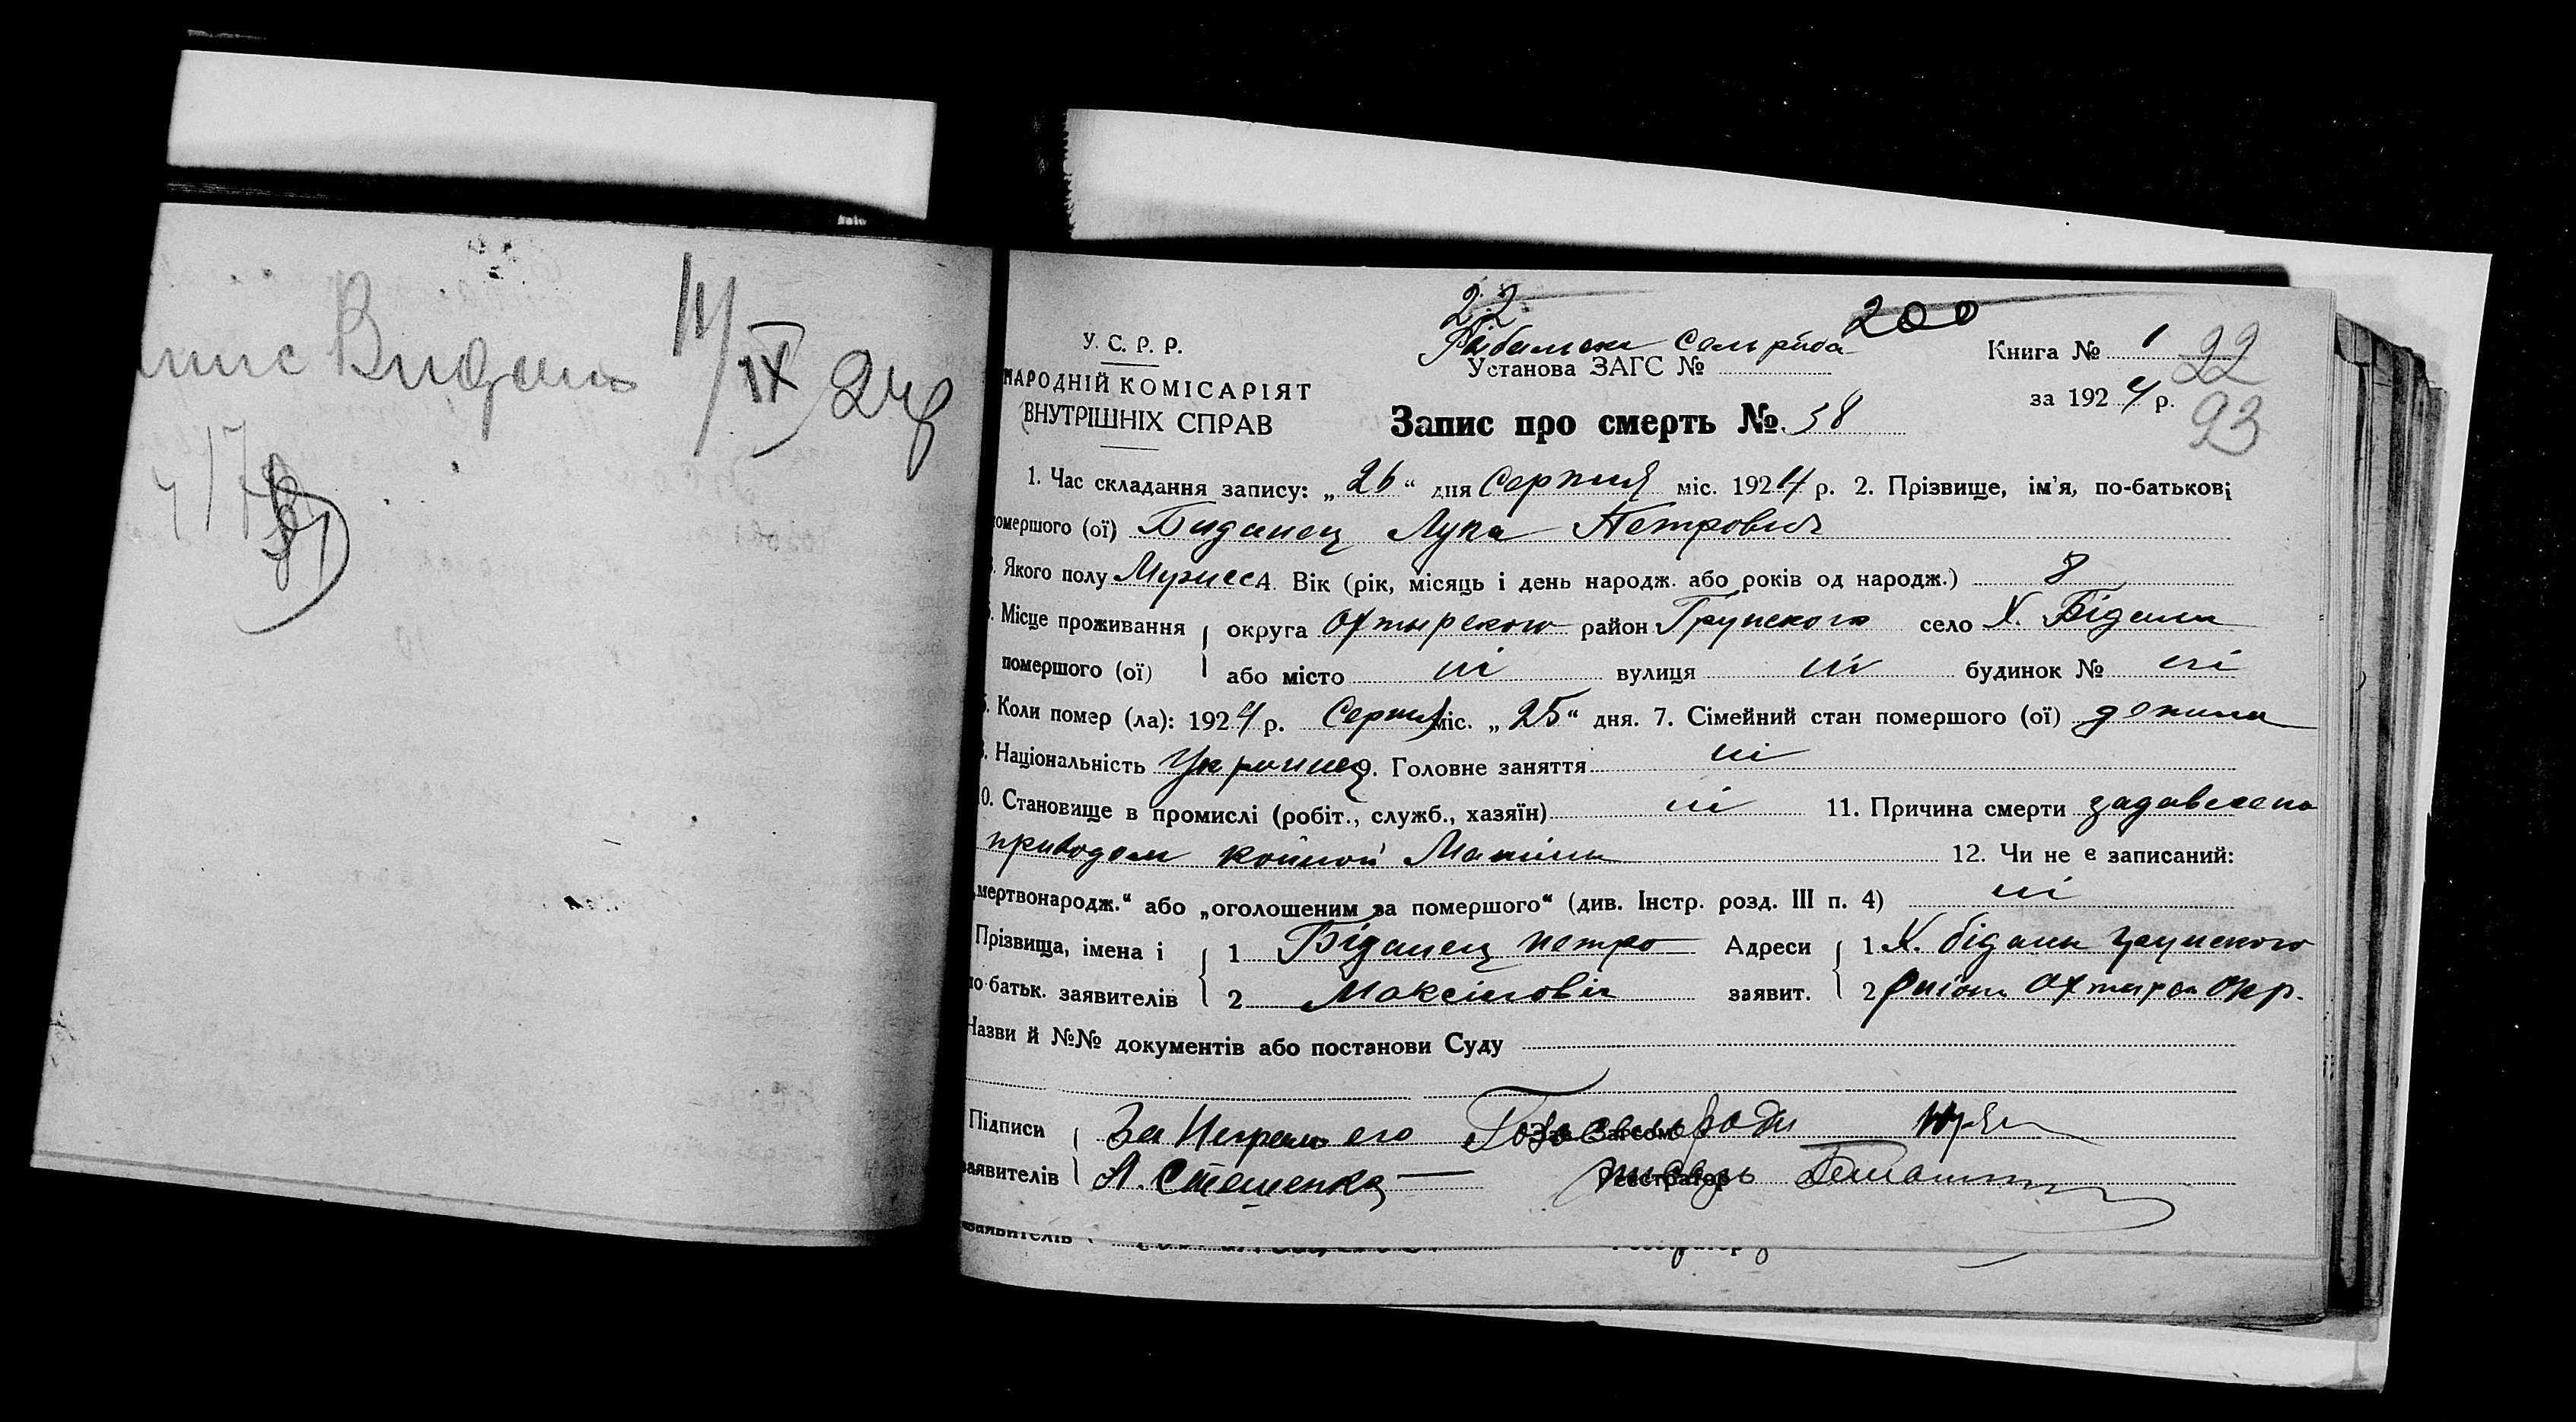 Видан 11/IX 24 р
22
200
Рибальська Сельрада
У. С. Р. Р.
Установа ЗАГС №
Книга № 1 22
НАРОДНІЙ КОМІСАРІЯТ
за 1924 р. 93
ВНУТРІШНІХ СПРАВ
Запис про смерть № 38
1. Час складання запису: „26“ дня Серпня міс. 1924 р. 2. Прізвище, ім'я, по-батькові
помершого (ої) Биданец Лука Петрович
Якого полу Мужеск 4. Вік (рік, місяць і день народж. або років од народж.) 8
Місце проживання округа Охтырского район Грунского село Х. Бідани
помершого (ої) або місто ні вулиця ні будинок № ні
Коли помер (ла): 1924 р. Серпня міс. „25“ дня. 7. Сімейний стан помершого (ої)
Національність Украинец 9. Головне заняття ні
10. Становище в промислі (робіт., служб., хазяїн) ні 11. Причина смерти задавлено
приводом конной Машины 12. Чи не є записаний:
„мертвонародж.“ або „оголошеним за помершого“ (див. Інстр. розд. III п. 4) ні
Прізвища, імена і 1 Біданец петро Адреси 1 Х. бідани грунского
по-батьк. заявителів 2 Максімовіч заявит. 2 району Охтырск Окр.
Назви й №№ документів або постанови Суду
Підписи За Неграм его Голова сельради
заявителів А. Стешенко Реєстратор
заявителів